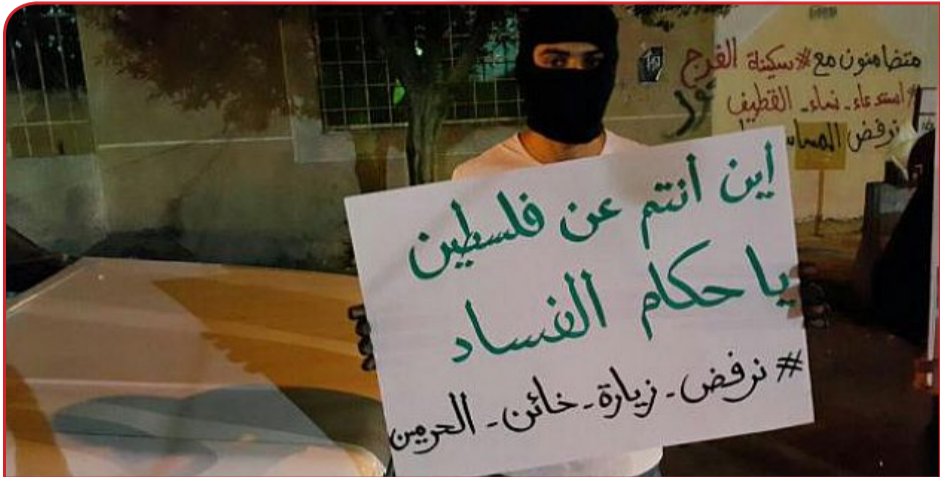 متضامنون مع #سكينة الفرج
#استدعاء_نساء_القطيف
نرفض
اين أنتم عن فلسطين
يا حكام الفساد
#نرفض_زيارة_خائن_الحرمين